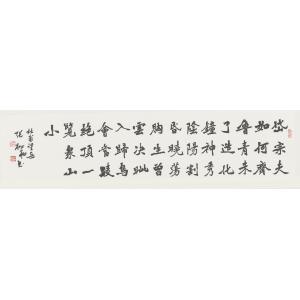 岱宗夫
如何齊
魯青未
了造化
鐘神秀
陰陽割
昏曉蕩
胸生曾
雲决眦
入歸鳥
會當凌
絶頂一
覽衆山
小
杜甫望岳